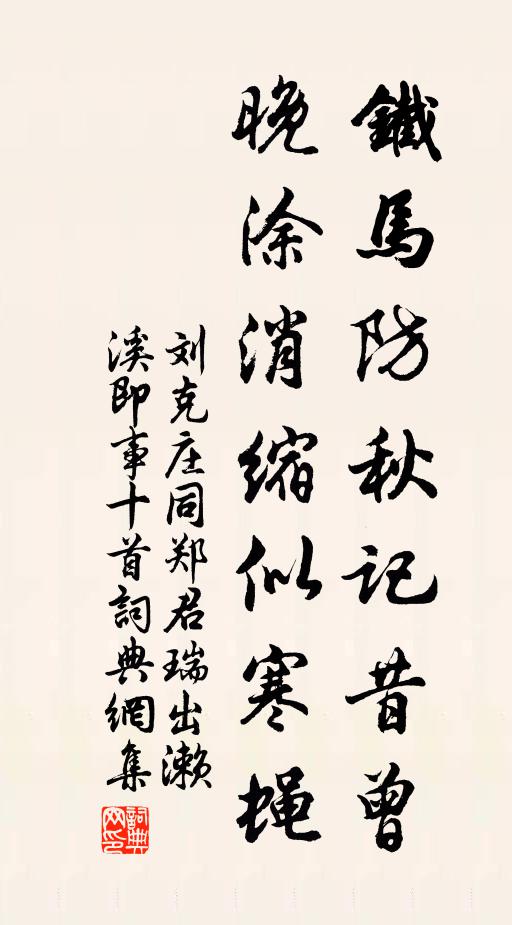 鐵馬防秋記昔曾
晚涂消缩似寒蝇
刘克庄同郑君瑞出濑
溪即事十首詞典網集
詞典
网印